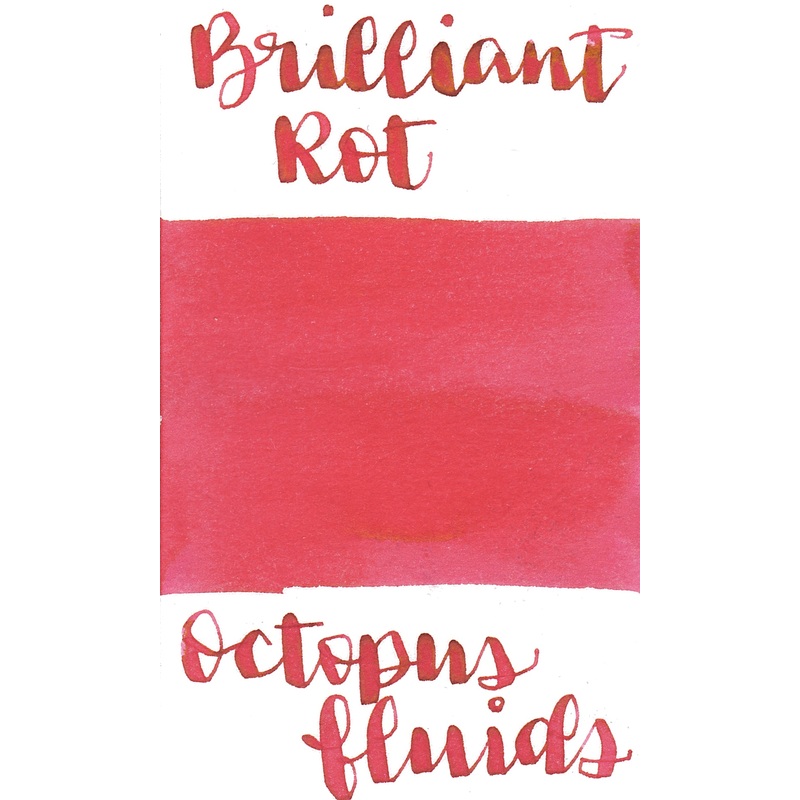 Brilliant
Rot
Octopus
fluids